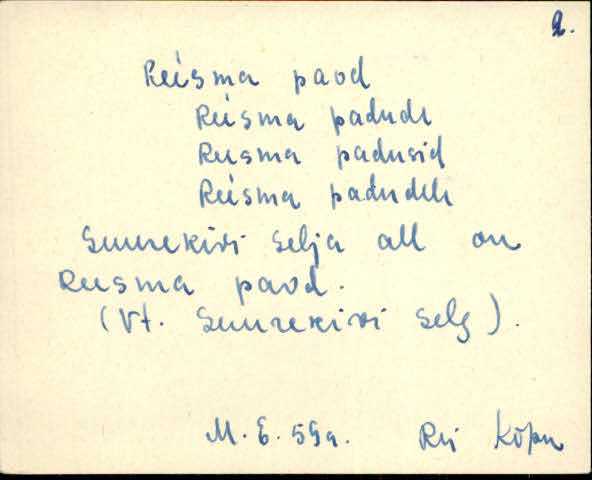 2.
Reisma paod
Reisma padude
Reisma padusid
Reisma padudele
Suurekivi selja all on
Reisma paod.
(Vt. Suurekivi selg).
M. E. 59a. Rei Kõpu